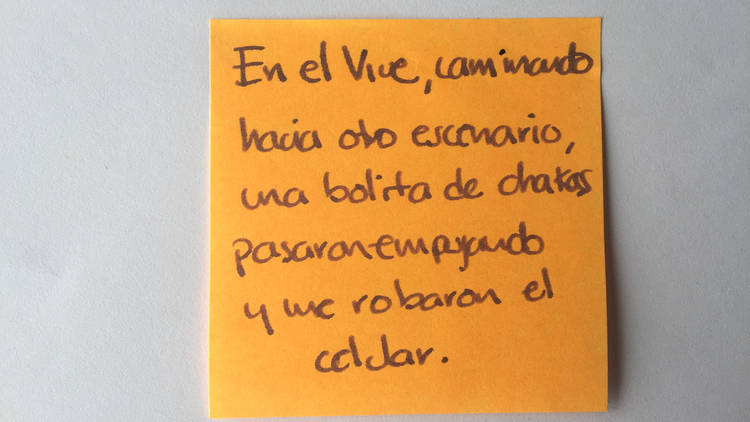 En el Vive, caminando
hacia otro escenario,
una bolita de chakas
pasaron empujando
y me robaron el
celular.